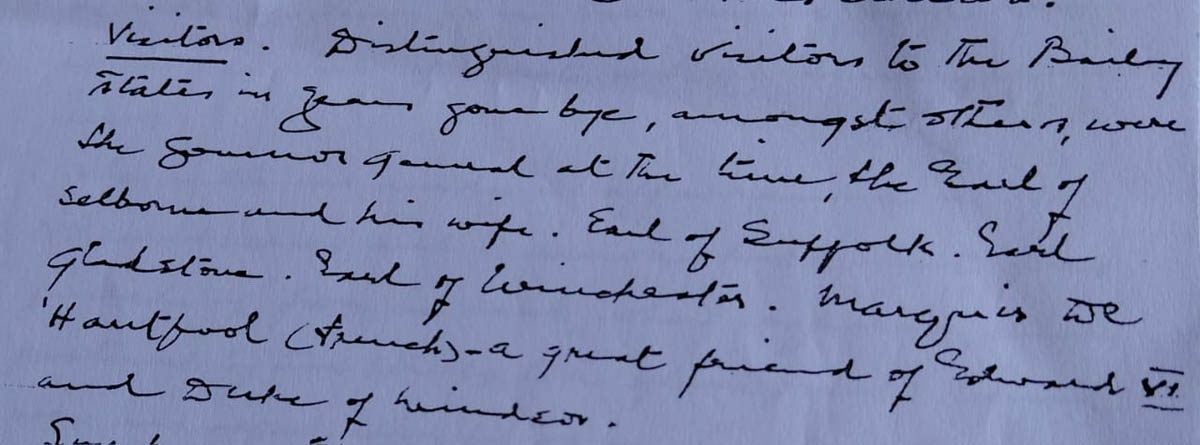 Visitors. Distinguished visitors to the Baily
States in years gone bye, amongst others, were
the Governor General at the time, the Earl of
Selborne and his wife. Earl of Suffolk. Earl
Gladstone. Earl of Winchester. Marquis De
'Hautpool (French) - a great friend of Edward VI
and Duke of Windsor.